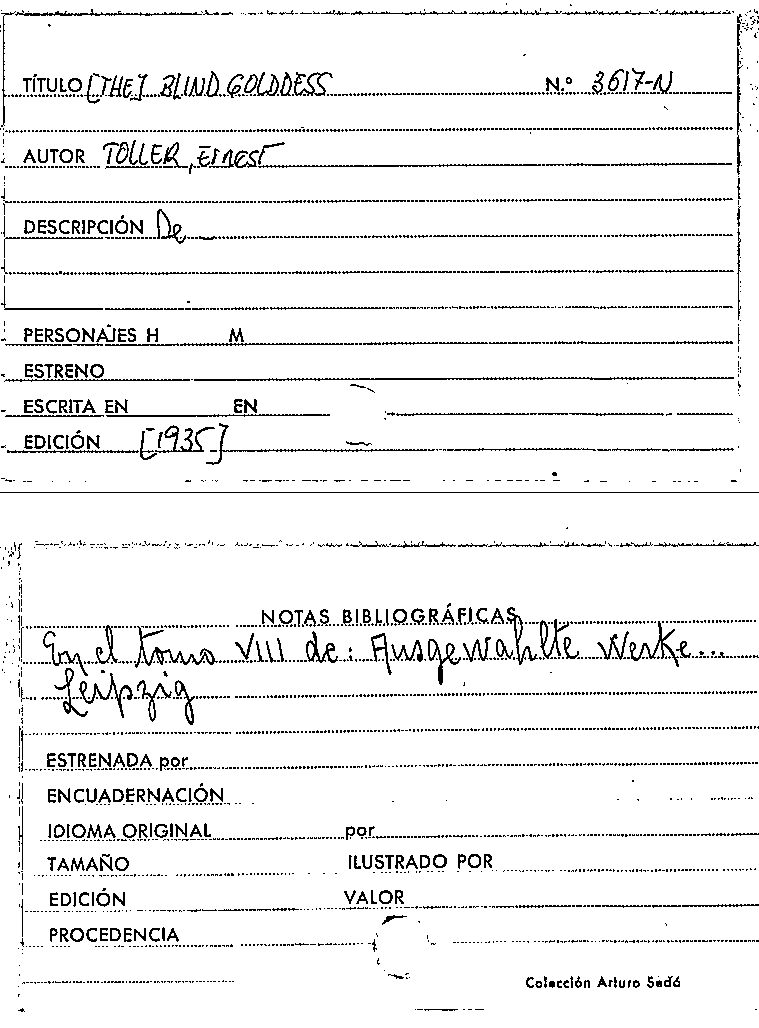 TÍTULO [THE] BLIND GOLDDESS N.º 3617-N
AUTOR TOLLER, Ernest
DESCRIPCIÓN De
PERSONAJES H M
ESTRENO
ESCRITA EN EN
EDICIÓN [1935]
NOTAS BIBLIOGRÁFICAS
En el tomo VIII de: Ausgewahlte Werke...
Leipzig
ESTRENADA por
ENCUADERNACIÓN
IDIOMA ORIGINAL por
TAMAÑO ILUSTRADO POR
EDICIÓN VALOR
PROCEDENCIA
Colección Arturo Sedó